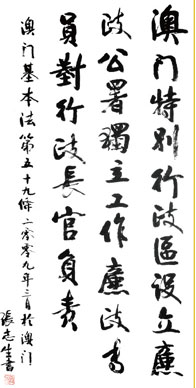 澳门特別行政區設立廉
政公署獨立工作廉政专
員對行政長官負责
澳门基本法第五十九條二零零九年三月於澳门
張志生書